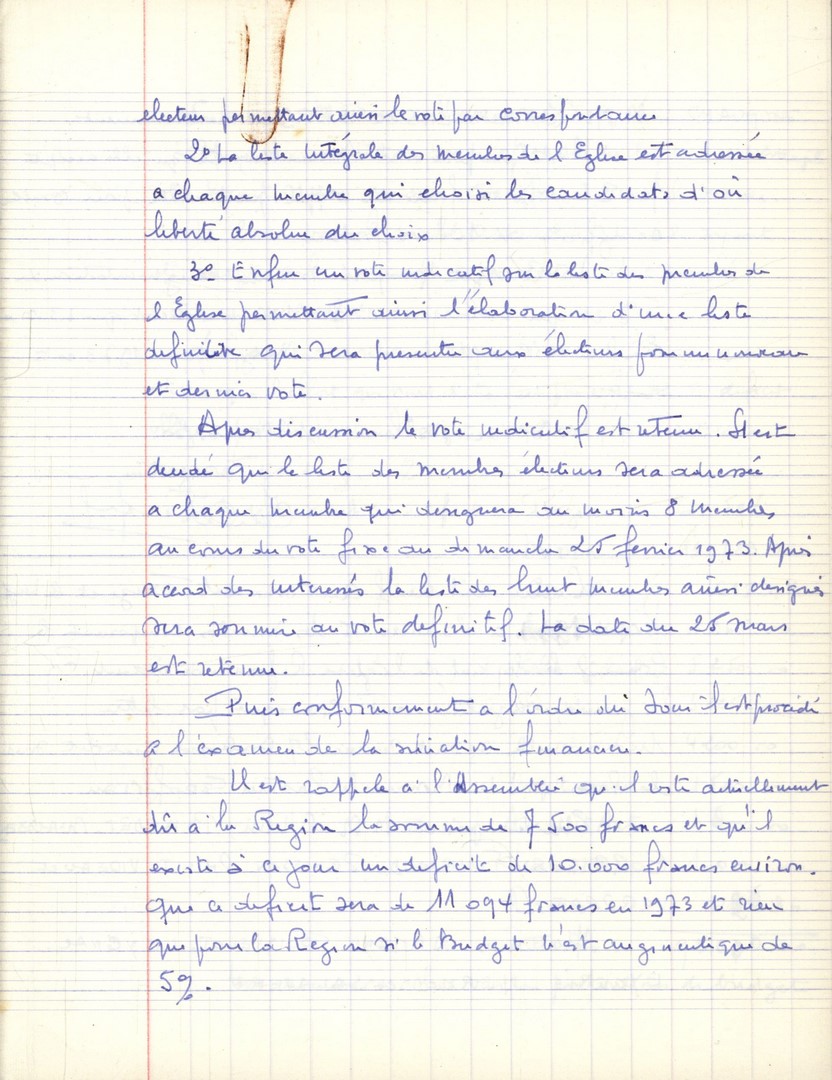 electeurs permettant ainsi le vote par correspondance
2º La liste intégrale des membres de l'Eglise est adressée
a chaque membre qui choisi les candidats d'où
liberté absolue du choix
3º Enfin un vote indicatif sur la liste des membres de
l'Eglise permettant ainsi l'élaboration d'une liste
definitive qui sera presentee aux électeurs pour un nouveau
et dernier vote.
Apres discussion le vote indicatif est retenu. Il est
decidé que la liste des membres électeurs sera adressée
a chaque membre qui designera au moins 8 membres
au cours du vote fixe au dimanche 25 fevrier 1973. Après
acord des interessés la liste des huit membres ainsi designés
sera soumise au vote definitif. La date du 25 mars
est retenue.
Puis conformement a l'ordre du Jour il est procédé
a l'examen de la situation financiere.
Il est rappele a l'Assemblée qu'il reste actuellement
dû a la Region la somme de 7 500 francs et qu'il
existe à ce jour un deficit de 10.000 francs environ.
que ce deficit sera de 11 094 francs en 1973 et rien
que pour la Region si le Budget n'est augmenté que de
5%.